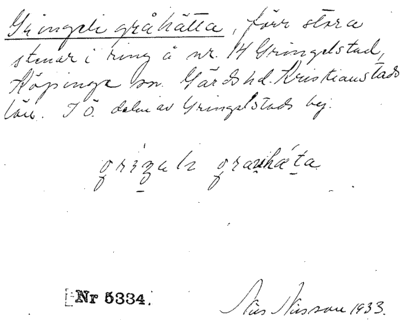 Gringeli gråhätta, förr stora
stenar i ring å nr. 14 Gringelstad,
Köpinge sn. Gärds hd. Kristianstads
län. I ö. delen av Gringelstads by.
Nr 5334.
Nils Nilsson 1933.